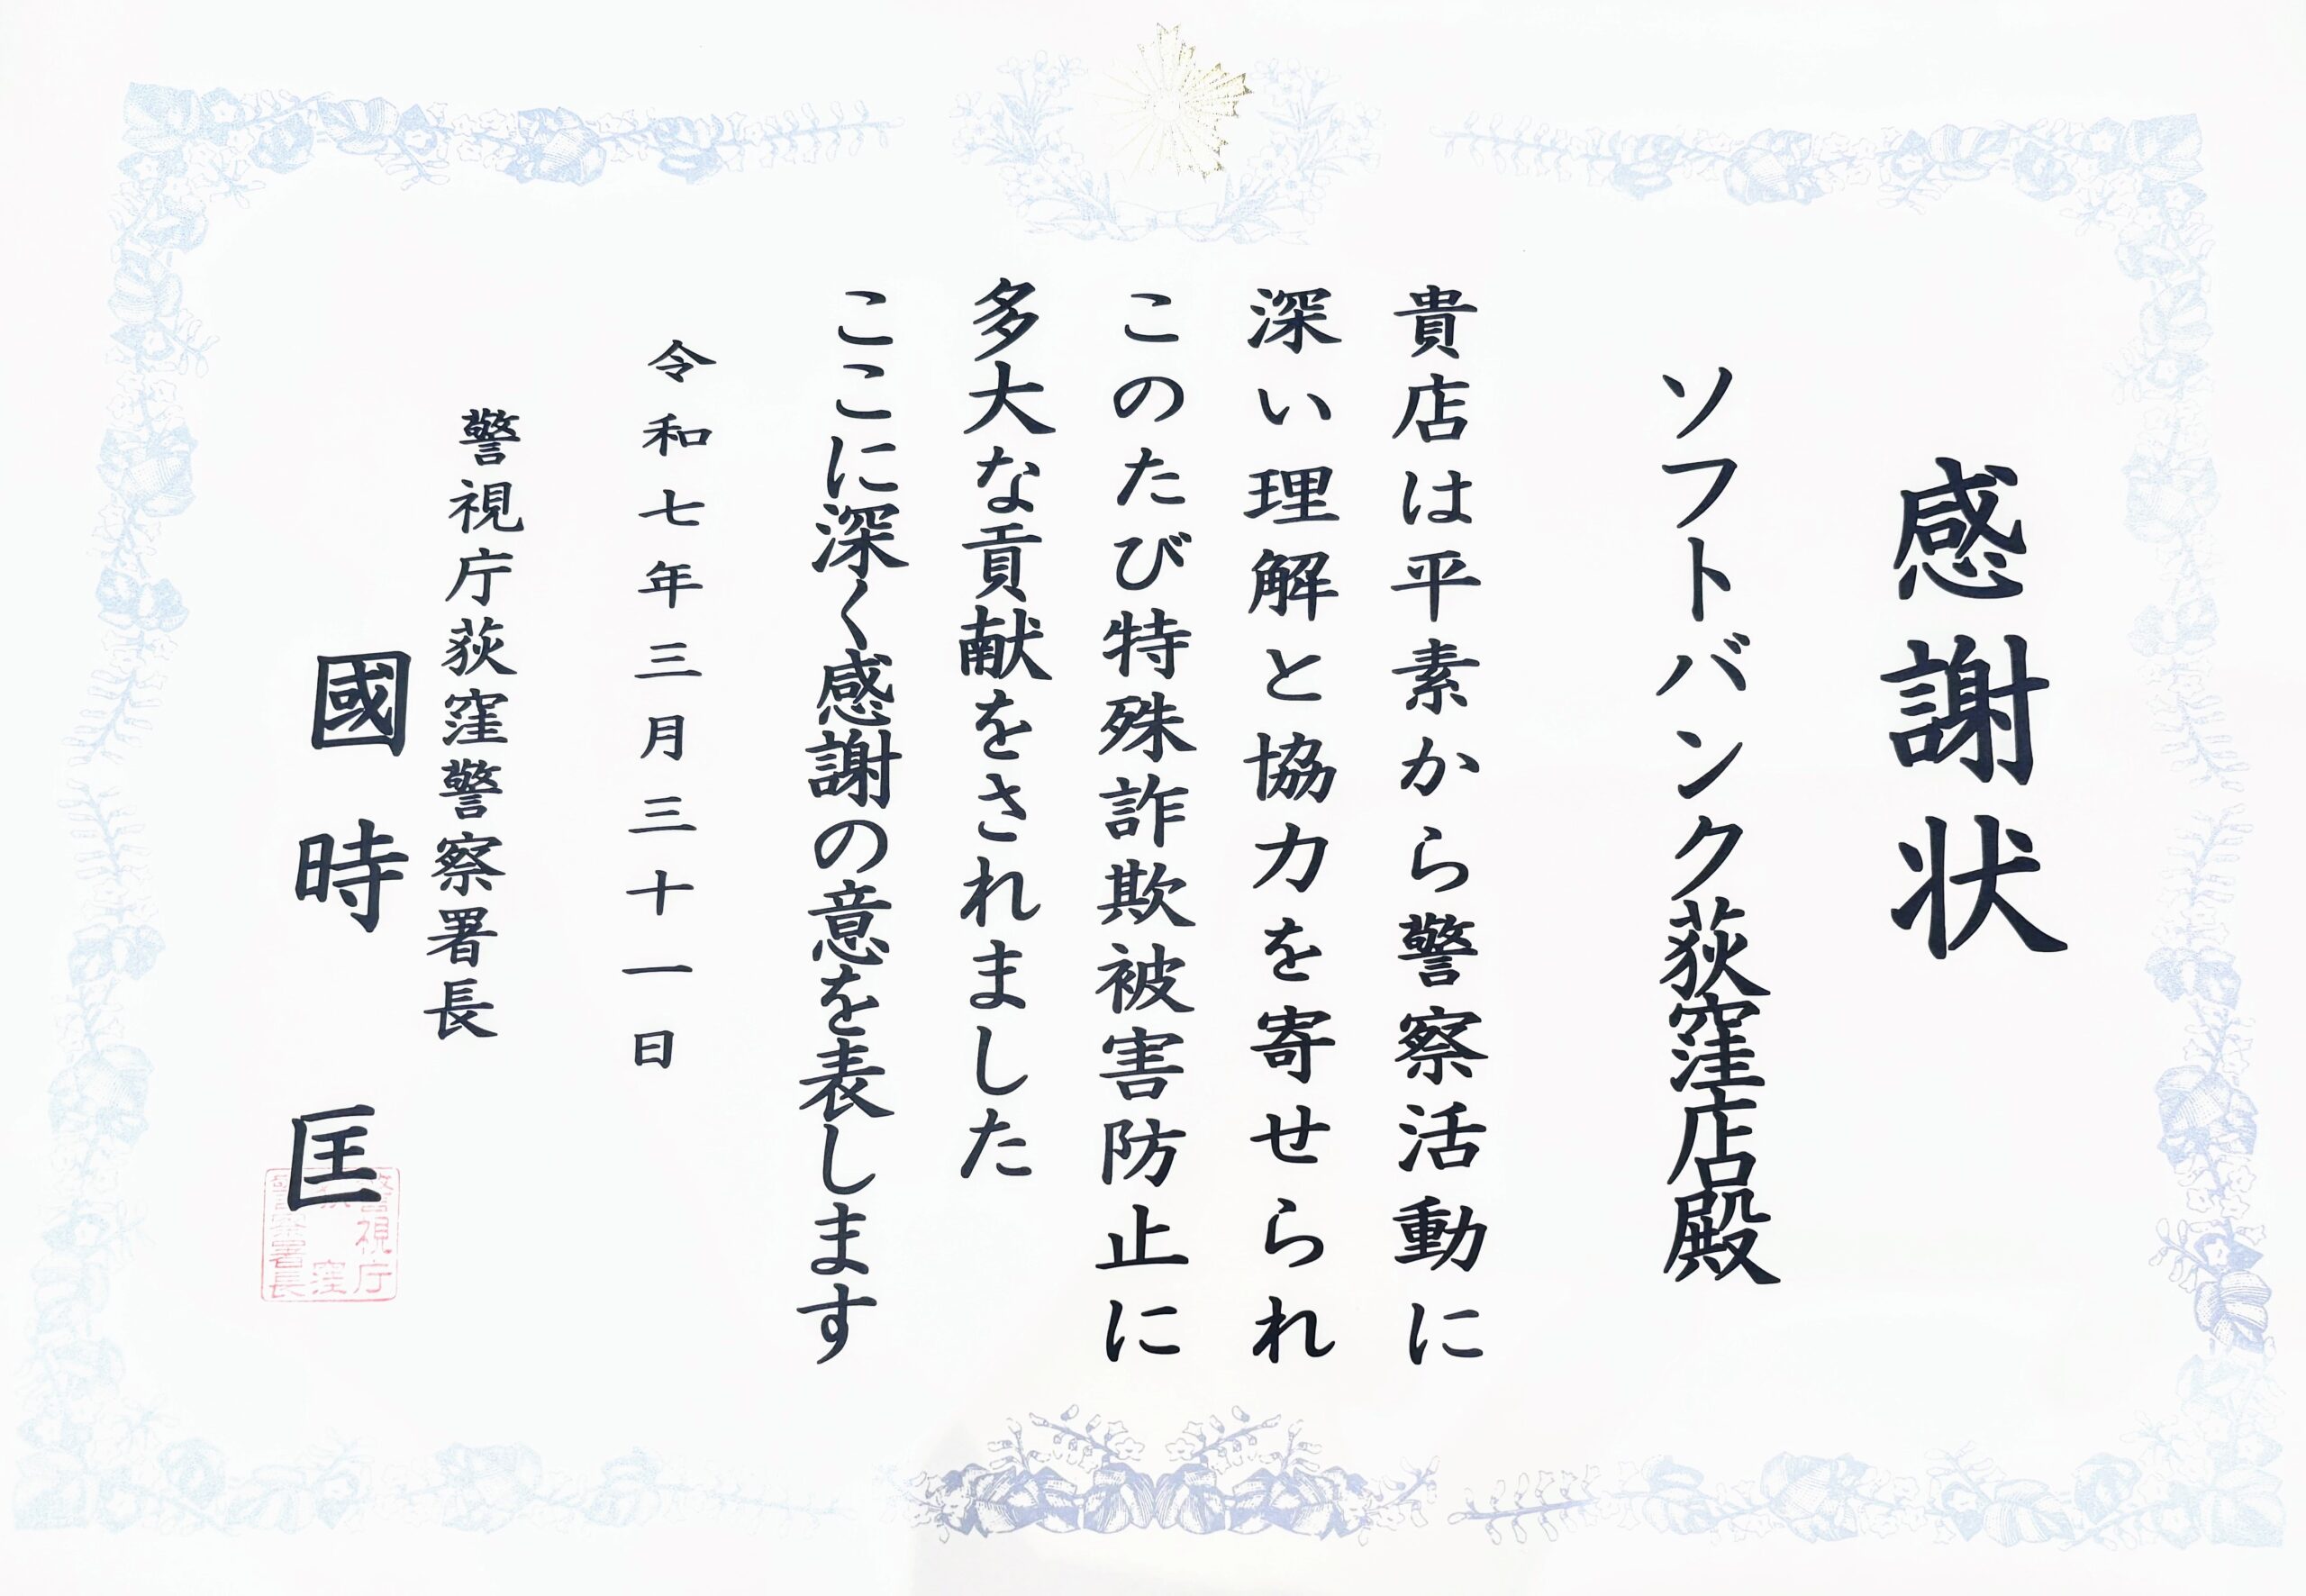 感謝状
ソフトバンク荻窪店殿
貴店は平素から警察活動に
深い理解と協力を寄せられ
このたび特殊詐欺被害防止に
多大な貢献をされました
ここに深く感謝の意を表します
令和七年三月三十一日
警視庁荻窪警察署長
國時 匡
警視庁
窪
警察署長